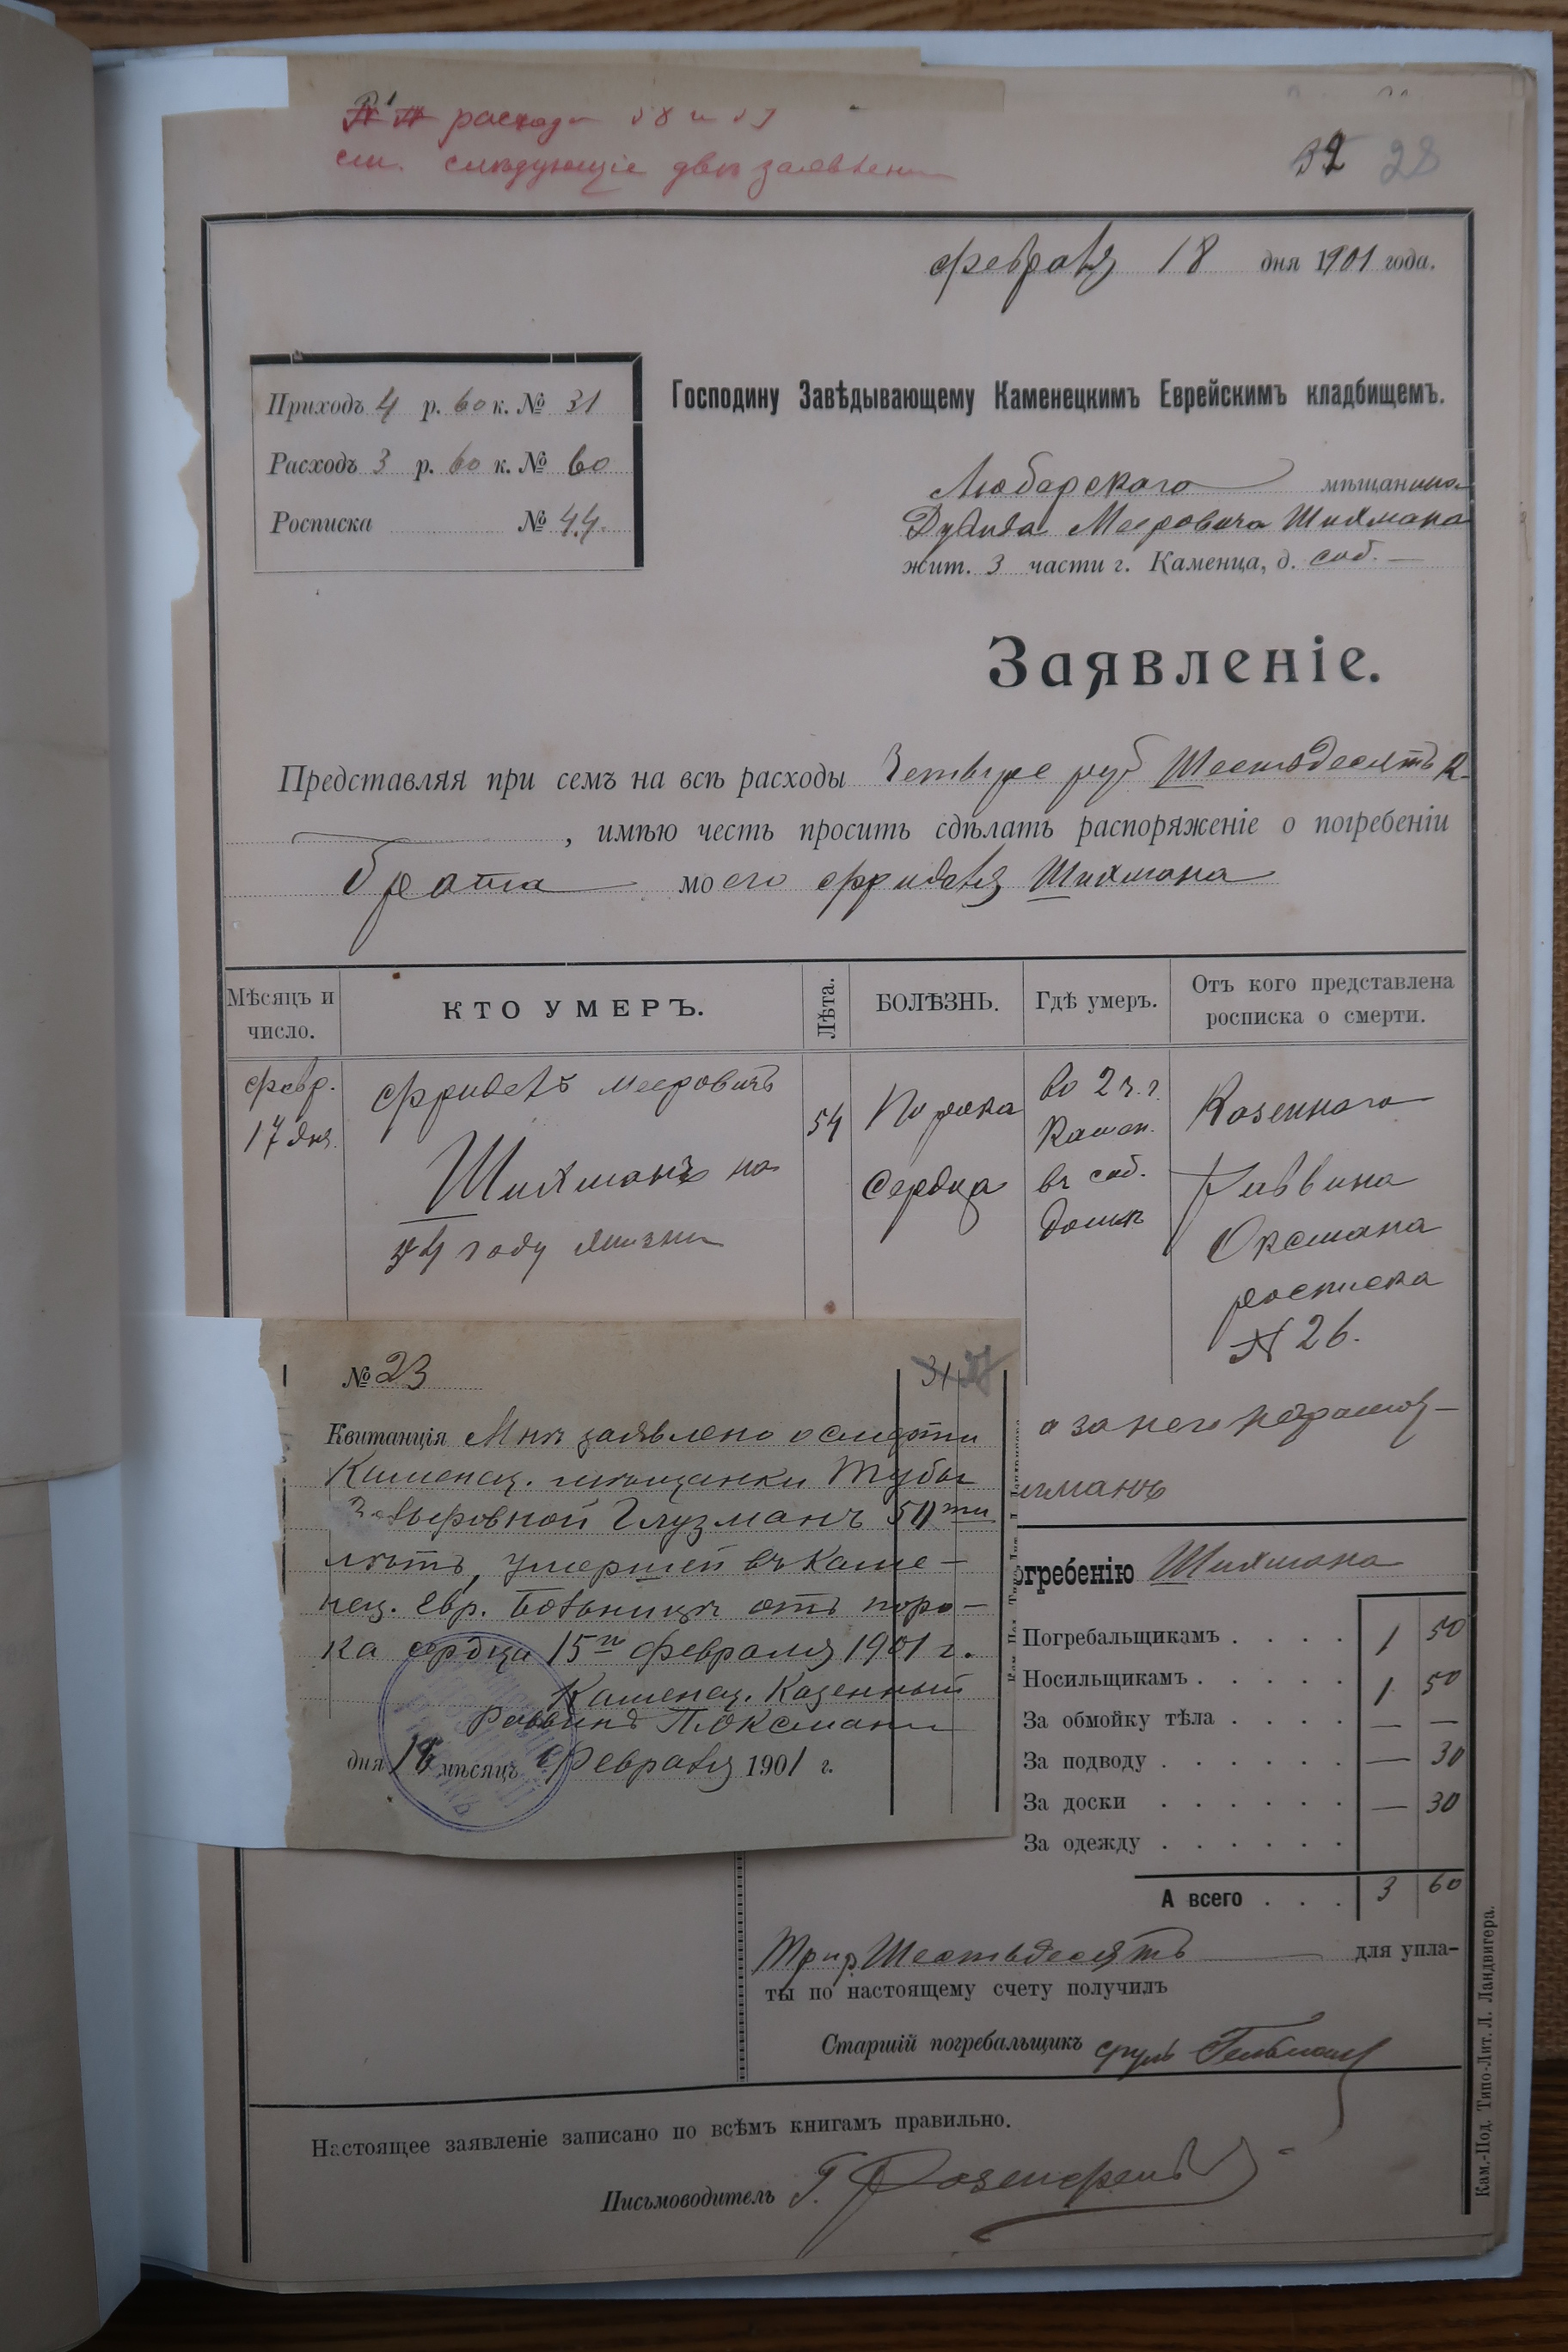 расход 58 и 59
см. следующіе два заявленія
32 28
февраля 18 дня 1901 года.
Приходъ 4 р. 60 к. № 31
Расходъ 3 р. 60 к. № 60
Росписка № 44.
Господину Завѣдывающему Каменецкимъ Еврейскимъ кладбищемъ.
Любарского мѣщанина
Дувида Мееровича Шихмана
жит. 3 части г. Каменца, д. соб.
Заявленіе.
Представляя при семъ на всѣ расходы Четыре руб Шестьдесятъ к.
, имѣю честь просить сдѣлать распоряженіе о погребеніи
брата моего Фриделя Шихмана
Мѣсяцъ и число.
КТО УМЕРЪ.
Лѣта.
БОЛѢЗНЬ.
Гдѣ умеръ.
Отъ кого представлена росписка о смерти.
Февр. 17 дня.
Фридель Мееровичъ
Шихманъ на
54 году жизни
54
Порока
Сердца
во 2 ч. г.
Камен.
въ соб.
домѣ
Казеннаго
Раввина
Оксмана
росписка
№ 26.
а за него неграмот-
№ 23
31
Квитанція Мнѣ заявлено о смерти
Каменец. мѣщанки Тубы
Глузманъ 50ти
лѣтъ, умершей въ Каме-
нец. Евр. Больницѣ отъ поро-
ка сердца 15го Февраля 1901 г.
Каменец. Казенный
Раввинъ П. Оксманъ
дня 18 мѣсяцъ Февраля 1901 г.
огребенію Шихмана
Погребальщикамъ . . . . 1 50
Носильщикамъ . . . . . 1 50
За обмойку тѣла . . . . — —
За подводу . . . . . . — 30
За доски . . . . . . — 30
За одежду . . . . . .
А всего . . . 3 60
Три р. Шестьдесятъ для упла-
ты по настоящему счету получилъ
Старшій погребальщикъ Сруль Гельман
Настоящее заявленіе записано по всѣмъ книгамъ правильно.
Письмоводитель Г. Розенфельд
Кам.-Под. Типо-Лит. Л. Ландвигера.